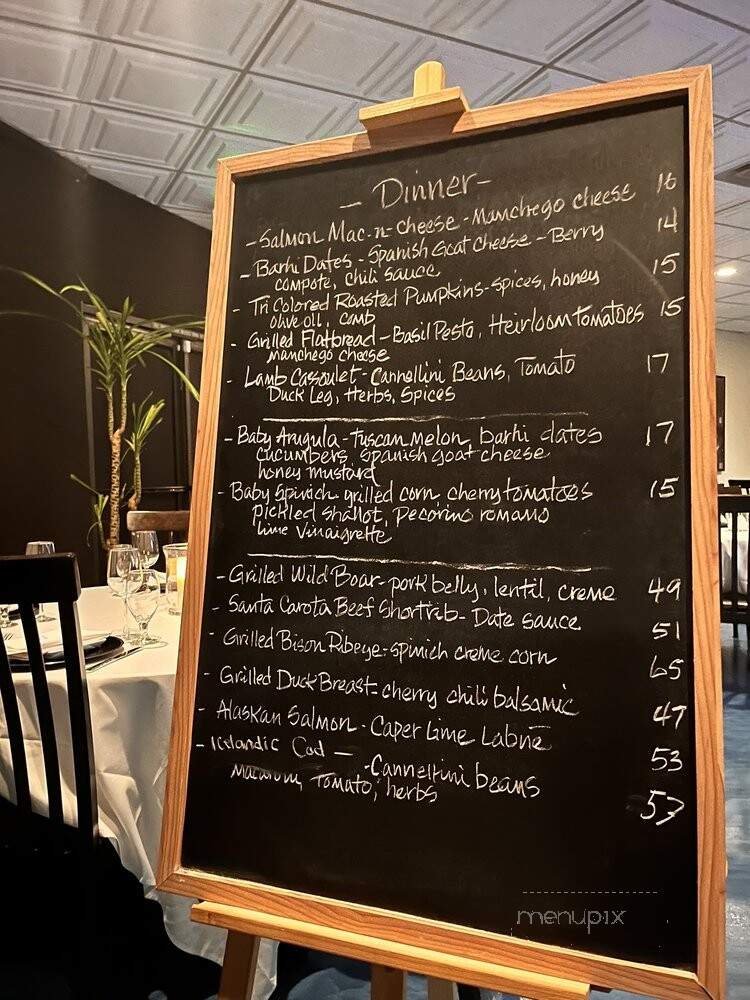 - Dinner-
- Salmon Mac-n-cheese - Manchego cheese 16
- Barhi Dates - Spanish Goat cheese - Berry 14
compote, chili sauce
- Tri Colored Roasted Pumpkins - spices, honey 15
olive oil, comb
- Grilled Flatbread - Basil Pesto, Heirloom tomatoes 15
manchego cheese
- Lamb Cassoulet - Cannellini Beans, Tomato 17
Duck Leg, Herbs, Spices
- Baby Arugula - Tuscan Melon, barhi dates 17
cucumbers, Spanish goat cheese
honey mustard
- Baby Spinich grilled corn, cherry tomatoes 15
pickled shallot, pecorino romano
Lime Vinaigrette
- Grilled Wild Boar - pork belly, lentil, creme 49
- Santa Carota Beef Shortrib - Date sauce 51
- Grilled Bison Ribeye - spinich creme corn 65
- Grilled Duck Breast - cherry chili balsamic 47
- Alaskan Salmon - Caper Lime Labne 53
- Icelandic Cod - - Cannellini beans 57
Macaroni, Tomato, herbs
menupix